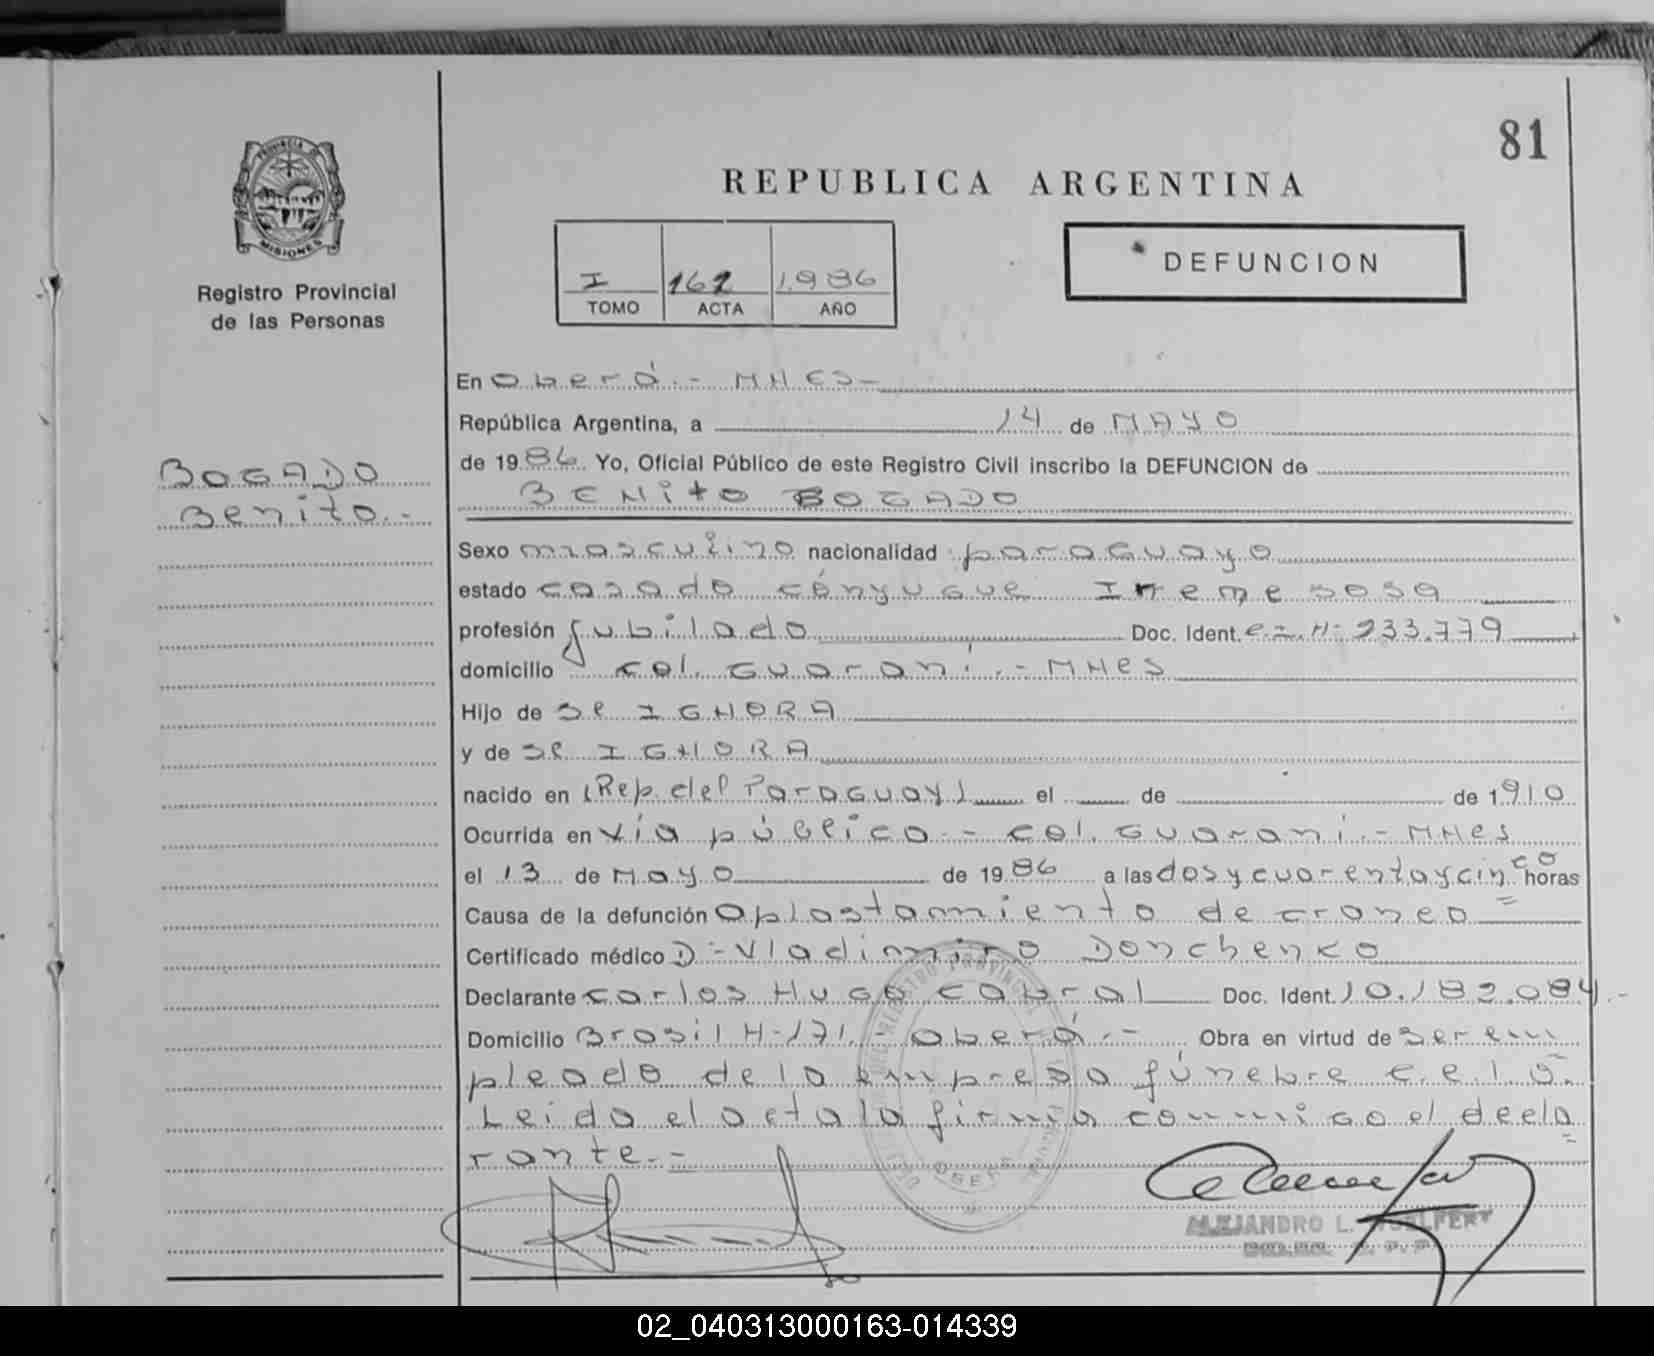 81
REPUBLICA ARGENTINA
PROVINCIA DE
MISIONES
Registro Provincial
de las Personas
I 162 1.986
TOMO ACTA AÑO
DEFUNCION
BOGADO
Benito.-
En Oberá.- MNES-
República Argentina, a 14 de MAYO
de 1986. Yo, Oficial Público de este Registro Civil inscribo la DEFUNCION de
BENITO BOGADO
Sexo masculino nacionalidad paraguayo
estado casado cónyugue Irene Sosa
profesión jubilado Doc. Ident. C.I. N- 233.779
domicilio Col. Guaraní.- MNes
Hijo de Se IGNORA
y de Se IGNORA
nacido en (Rep. del Paraguay) el de de 1910
Ocurrida en vía pública.- Col. Guaraní.- MNes
el 13 de Mayo de 1986 a las dos y cuarenta y cinco horas
Causa de la defunción aplastamiento de craneo=
Certificado médico D-Vladimiro Donchenko
Declarante Carlos Hugo Cabral Doc. Ident. 10.182.084.-
Domicilio Brasil N-171.- Oberá.- Obra en virtud de ser em
pleado de la empresa fúnebre C.E.L.O.=
Leida el acta la firma conmigo el decla=
rante.-
OBERA
ALEJANDRO L.
02_040313000163-014339